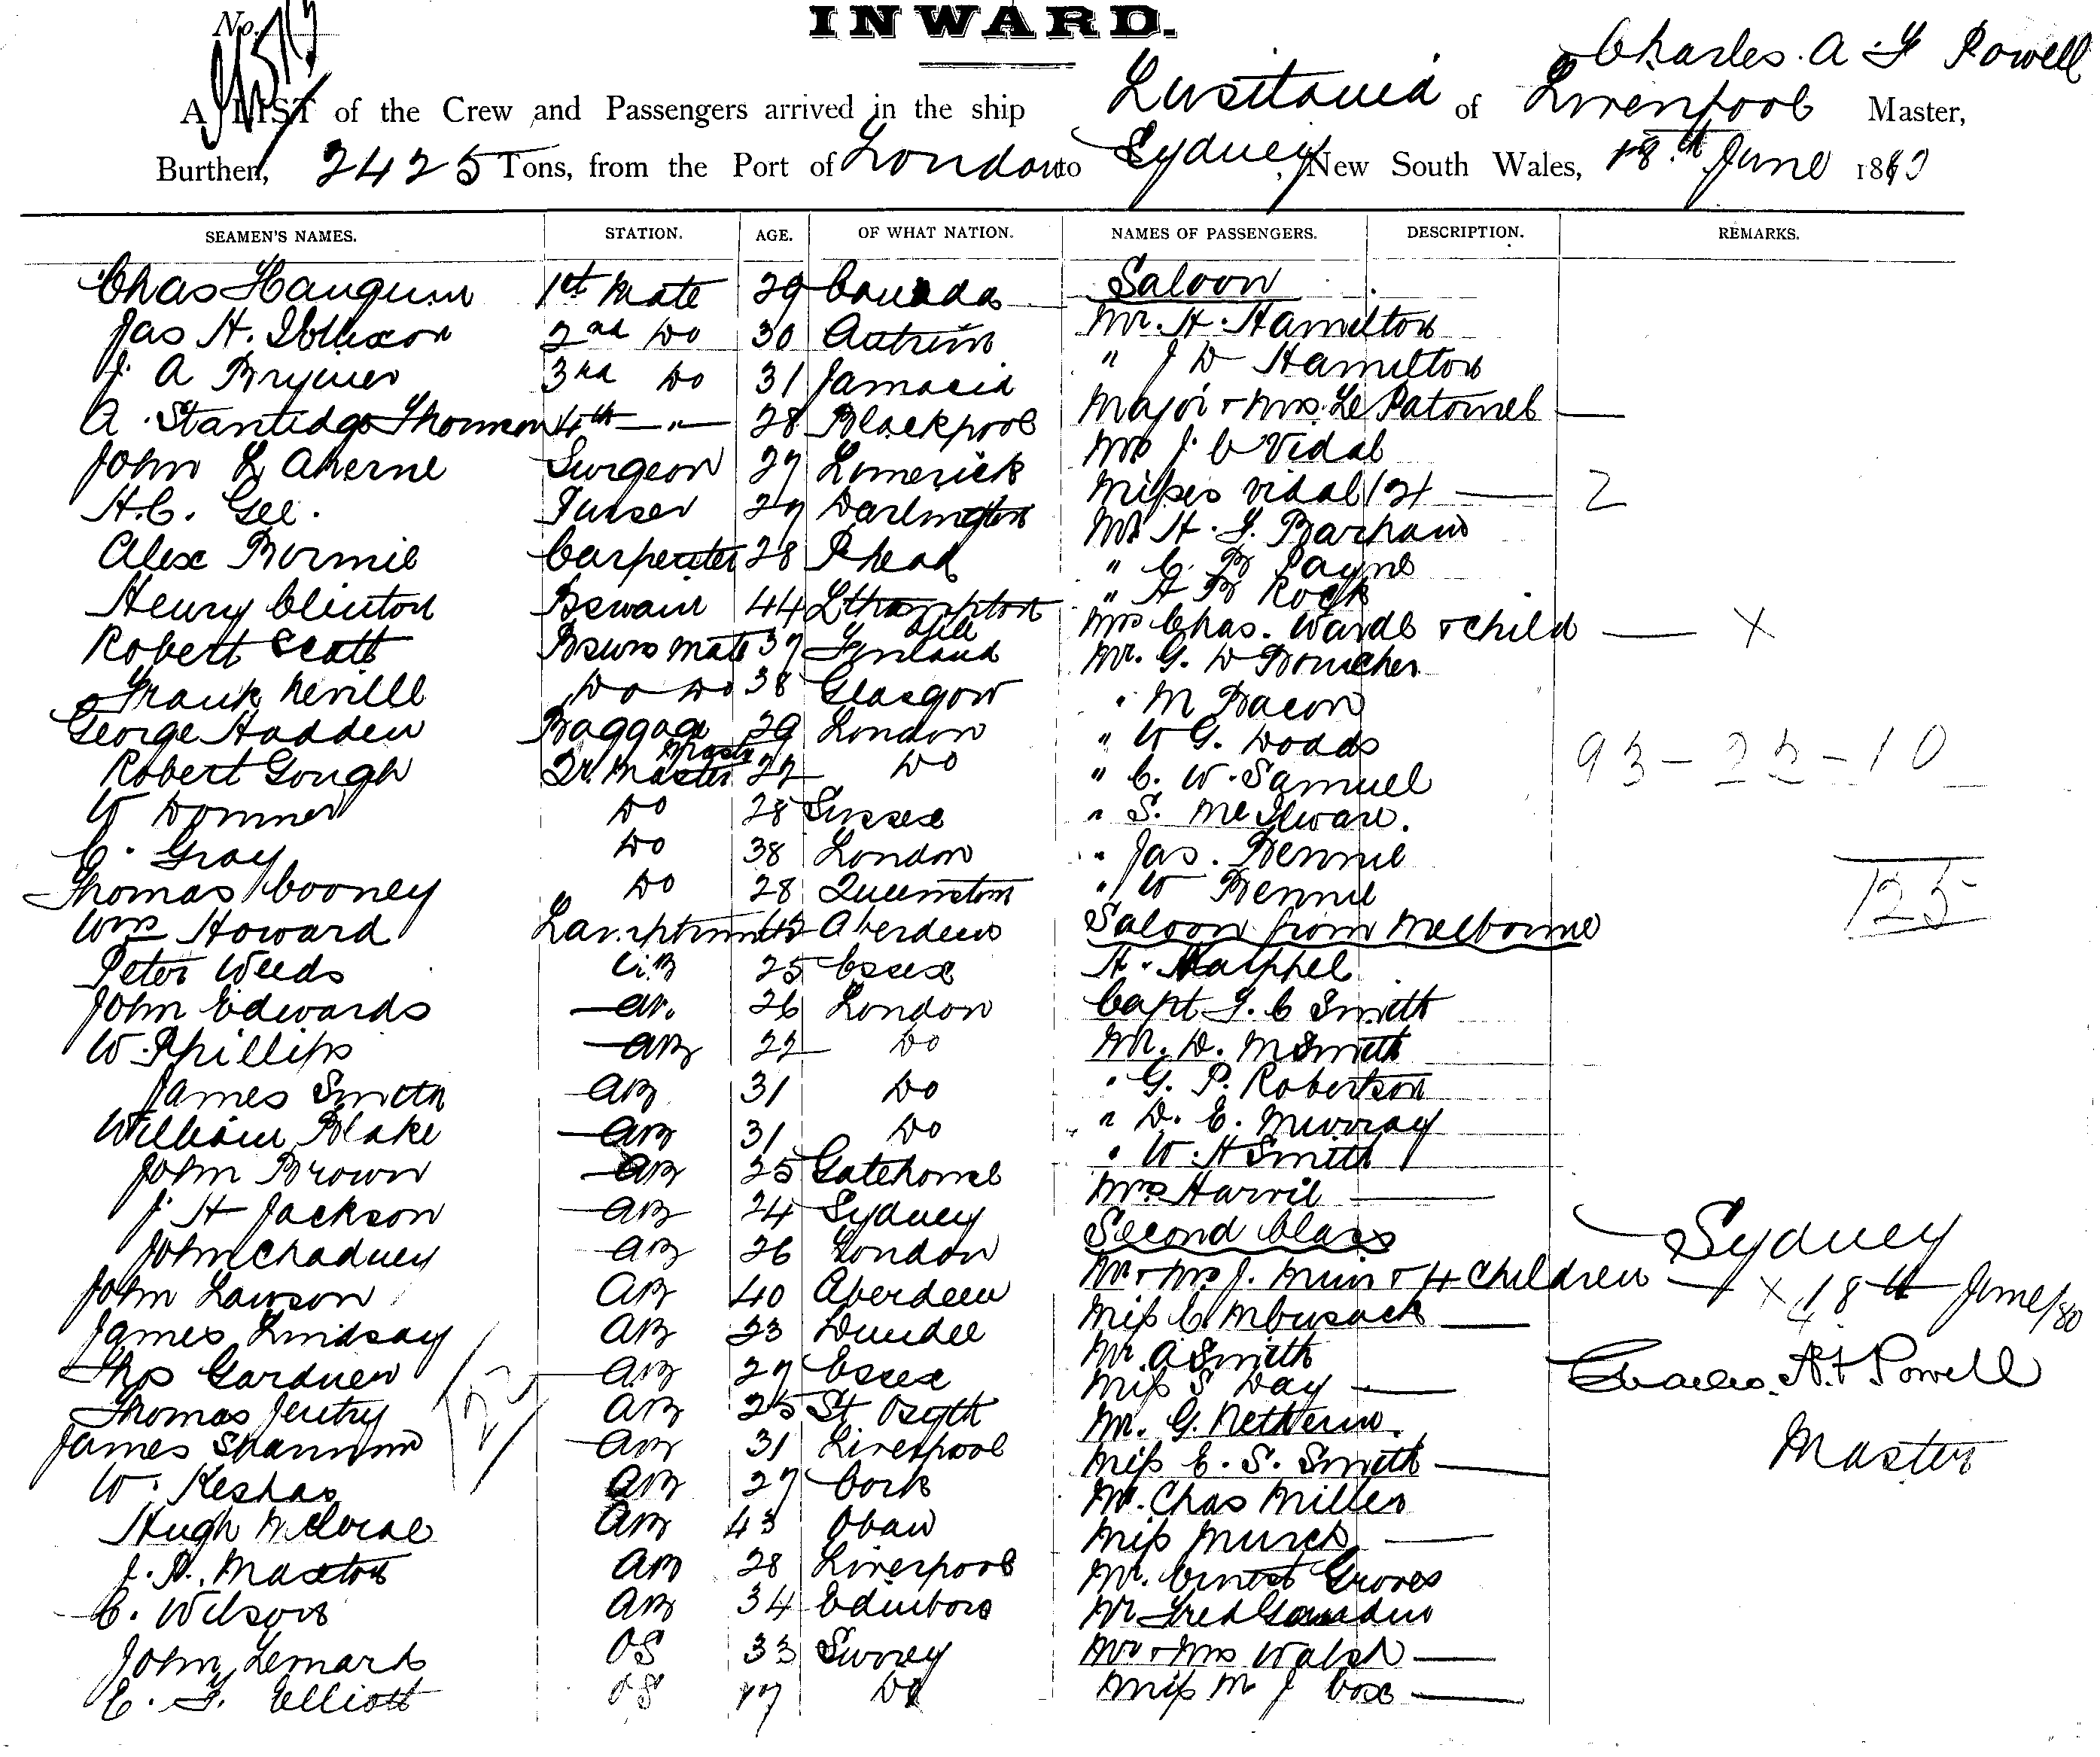 No.
INWARD.
Charles. A F Powell
A LIST of the Crew and Passengers arrived in the ship Lusitania of Liverpool Master,
Burthen, 2425 Tons, from the Port of London to Sydney, New South Wales, 18th June 1880
SEAMEN'S NAMES. STATION. AGE. OF WHAT NATION. NAMES OF PASSENGERS. DESCRIPTION. REMARKS.
Chas 1st Mate 29 Canada Saloon
Jas H. 2nd Do 30 Antrim Mr. H. Hamilton
J. A Brymer 3rd Do 31 Jamacia " J D Hamilton
A. 4th —"— 28 Blackpool Major + Mrs. Le
John L Aherne Surgeon 27 Limerick Mrs J C Vidal
H.C. Gee. Purser 27 Darlington Misses Vidal (2) — 2
Alex Birnie Carpenter 28 P.head Mr H. G. Barham
Henry Clinton Bswain 44 " C. B Payne
" H B Rock
Robert Scott Bswns Mate 37 Finland Mrs Chas. Wards + child — X
Frank Nevill Do Do 38 Glasgow Mr. G. D Boucher
George Hadden Baggage Mastr 29 London " M Bacon
Robert Gough Qr. Master 22 Do " W G. Dodds 93-22-10
W Do 28 Sussex " C. W. Samuel
C. Gray Do 38 London " S. McIlwain.
Thomas Cooney Do 28 Queenstown " Jas. Rennie
" W Rennie 125
Wm Howard Lamptrimmr Aberdeen Saloon from Melborne
Peter Weeds A.B 25 Essex H.
John Edwards AB. 26 London Capt G. C Smith
W. Phillips AB 22 Do Mr. D. M Smith
James Smith AB 31 Do " G. P. Robertson
William Blake AB 31 Do " D. E. Murray
John Brown AB 25 Gatehouse " W. H Smith
J. H Jackson AB 24 Sydney Mrs Harvil —
John Chadney AB 26 London Second Class Sydney
John Lawson AB 40 Aberdeen Mr + Mrs J. Muir + 4 Children — X 4 18th June/80
James Lindsay AB 23 Dundee Miss C. —
Thos Gardner AB 27 Essex Mr. A Smith Charles. A. F Powell
Thomas Jentry AB 25 St Osyth Miss S Day —
James Shannon AB 31 Liverpool Mr. G. Master
W. AB 27 Cork Miss E. S. Smith —
Hugh AB 43 Oban Mr. Chas Miller
J. P. Maxton AB 28 Liverpool Miss Murch —
C. Wilson AB 34 Edinboro Mr. Ernest Groves
John Lemark OS 33 Surrey Mr Fred
E. F. Elliott OS 17 Do Mr + Mrs Walsh —
Miss M J Cox —